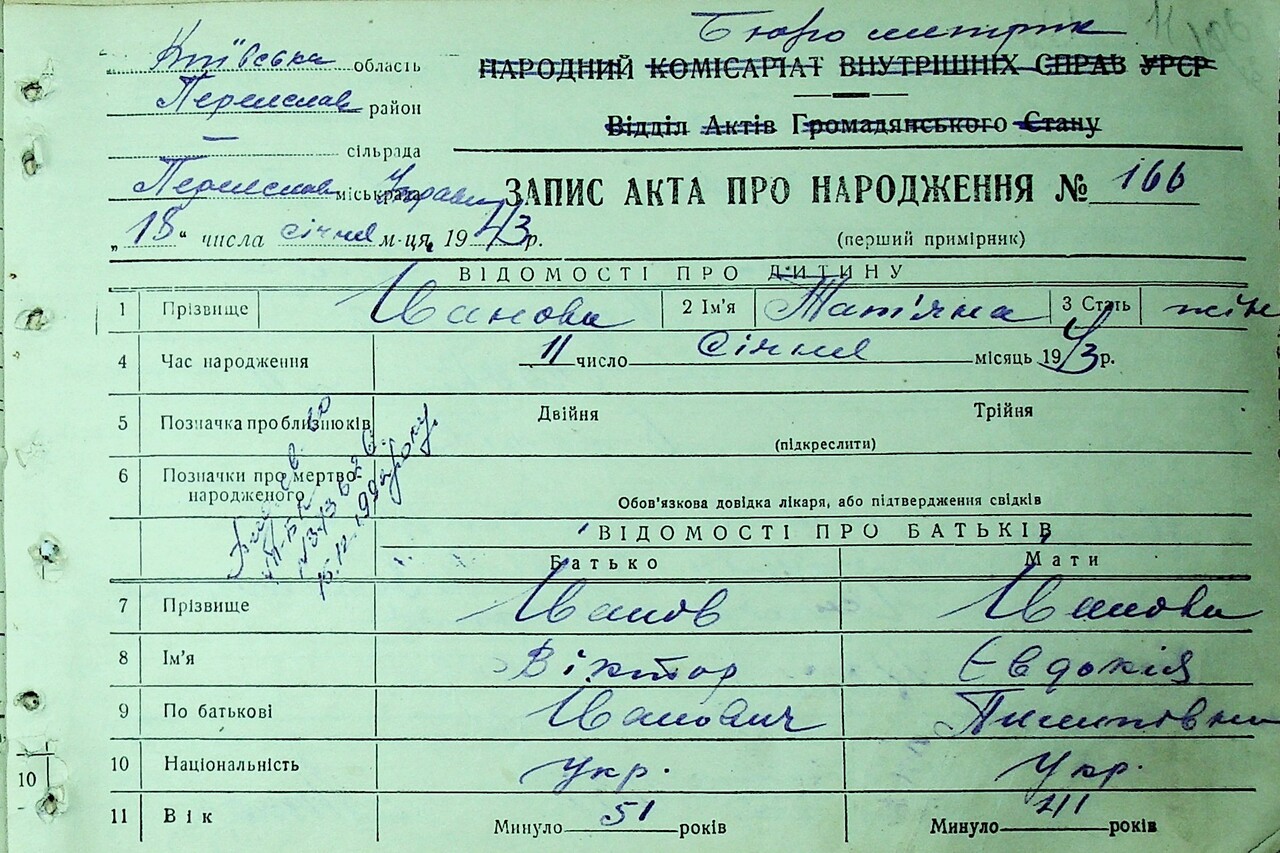 Бюро метрик
Київська область
НАРОДНИЙ КОМІСАРІАТ ВНУТРІШНІХ СПРАВ УРСР
Переяслав район
Відділ Актів Громадянського Стану
сільрада
Переяслав міськрада Управа
ЗАПИС АКТА ПРО НАРОДЖЕННЯ № 166
„18“ числа січня м-ця, 1943 р.
(перший примірник)
ВІДОМОСТІ ПРО ДИТИНУ
1 Прізвище Іванова 2 Ім'я Тат'яна 3 Стать жін
4 Час народження 11 число січня місяць 1943 р.
5 Позначка про близнюків Двійня Трійня
(підкреслити)
6 Позначки про мертво-
народженого
Обов'язкова довідка лікаря, або підтвердження свідків
ВІДОМОСТІ ПРО БАТЬКІВ
Батько Мати
7 Прізвище Іванов Іванова
8 Ім'я Віктор Євдокія
9 По батькові Іванович Пилиповна
10 Національність укр. Укр.
11 Вік Минуло 51 років Минуло 41 років
10